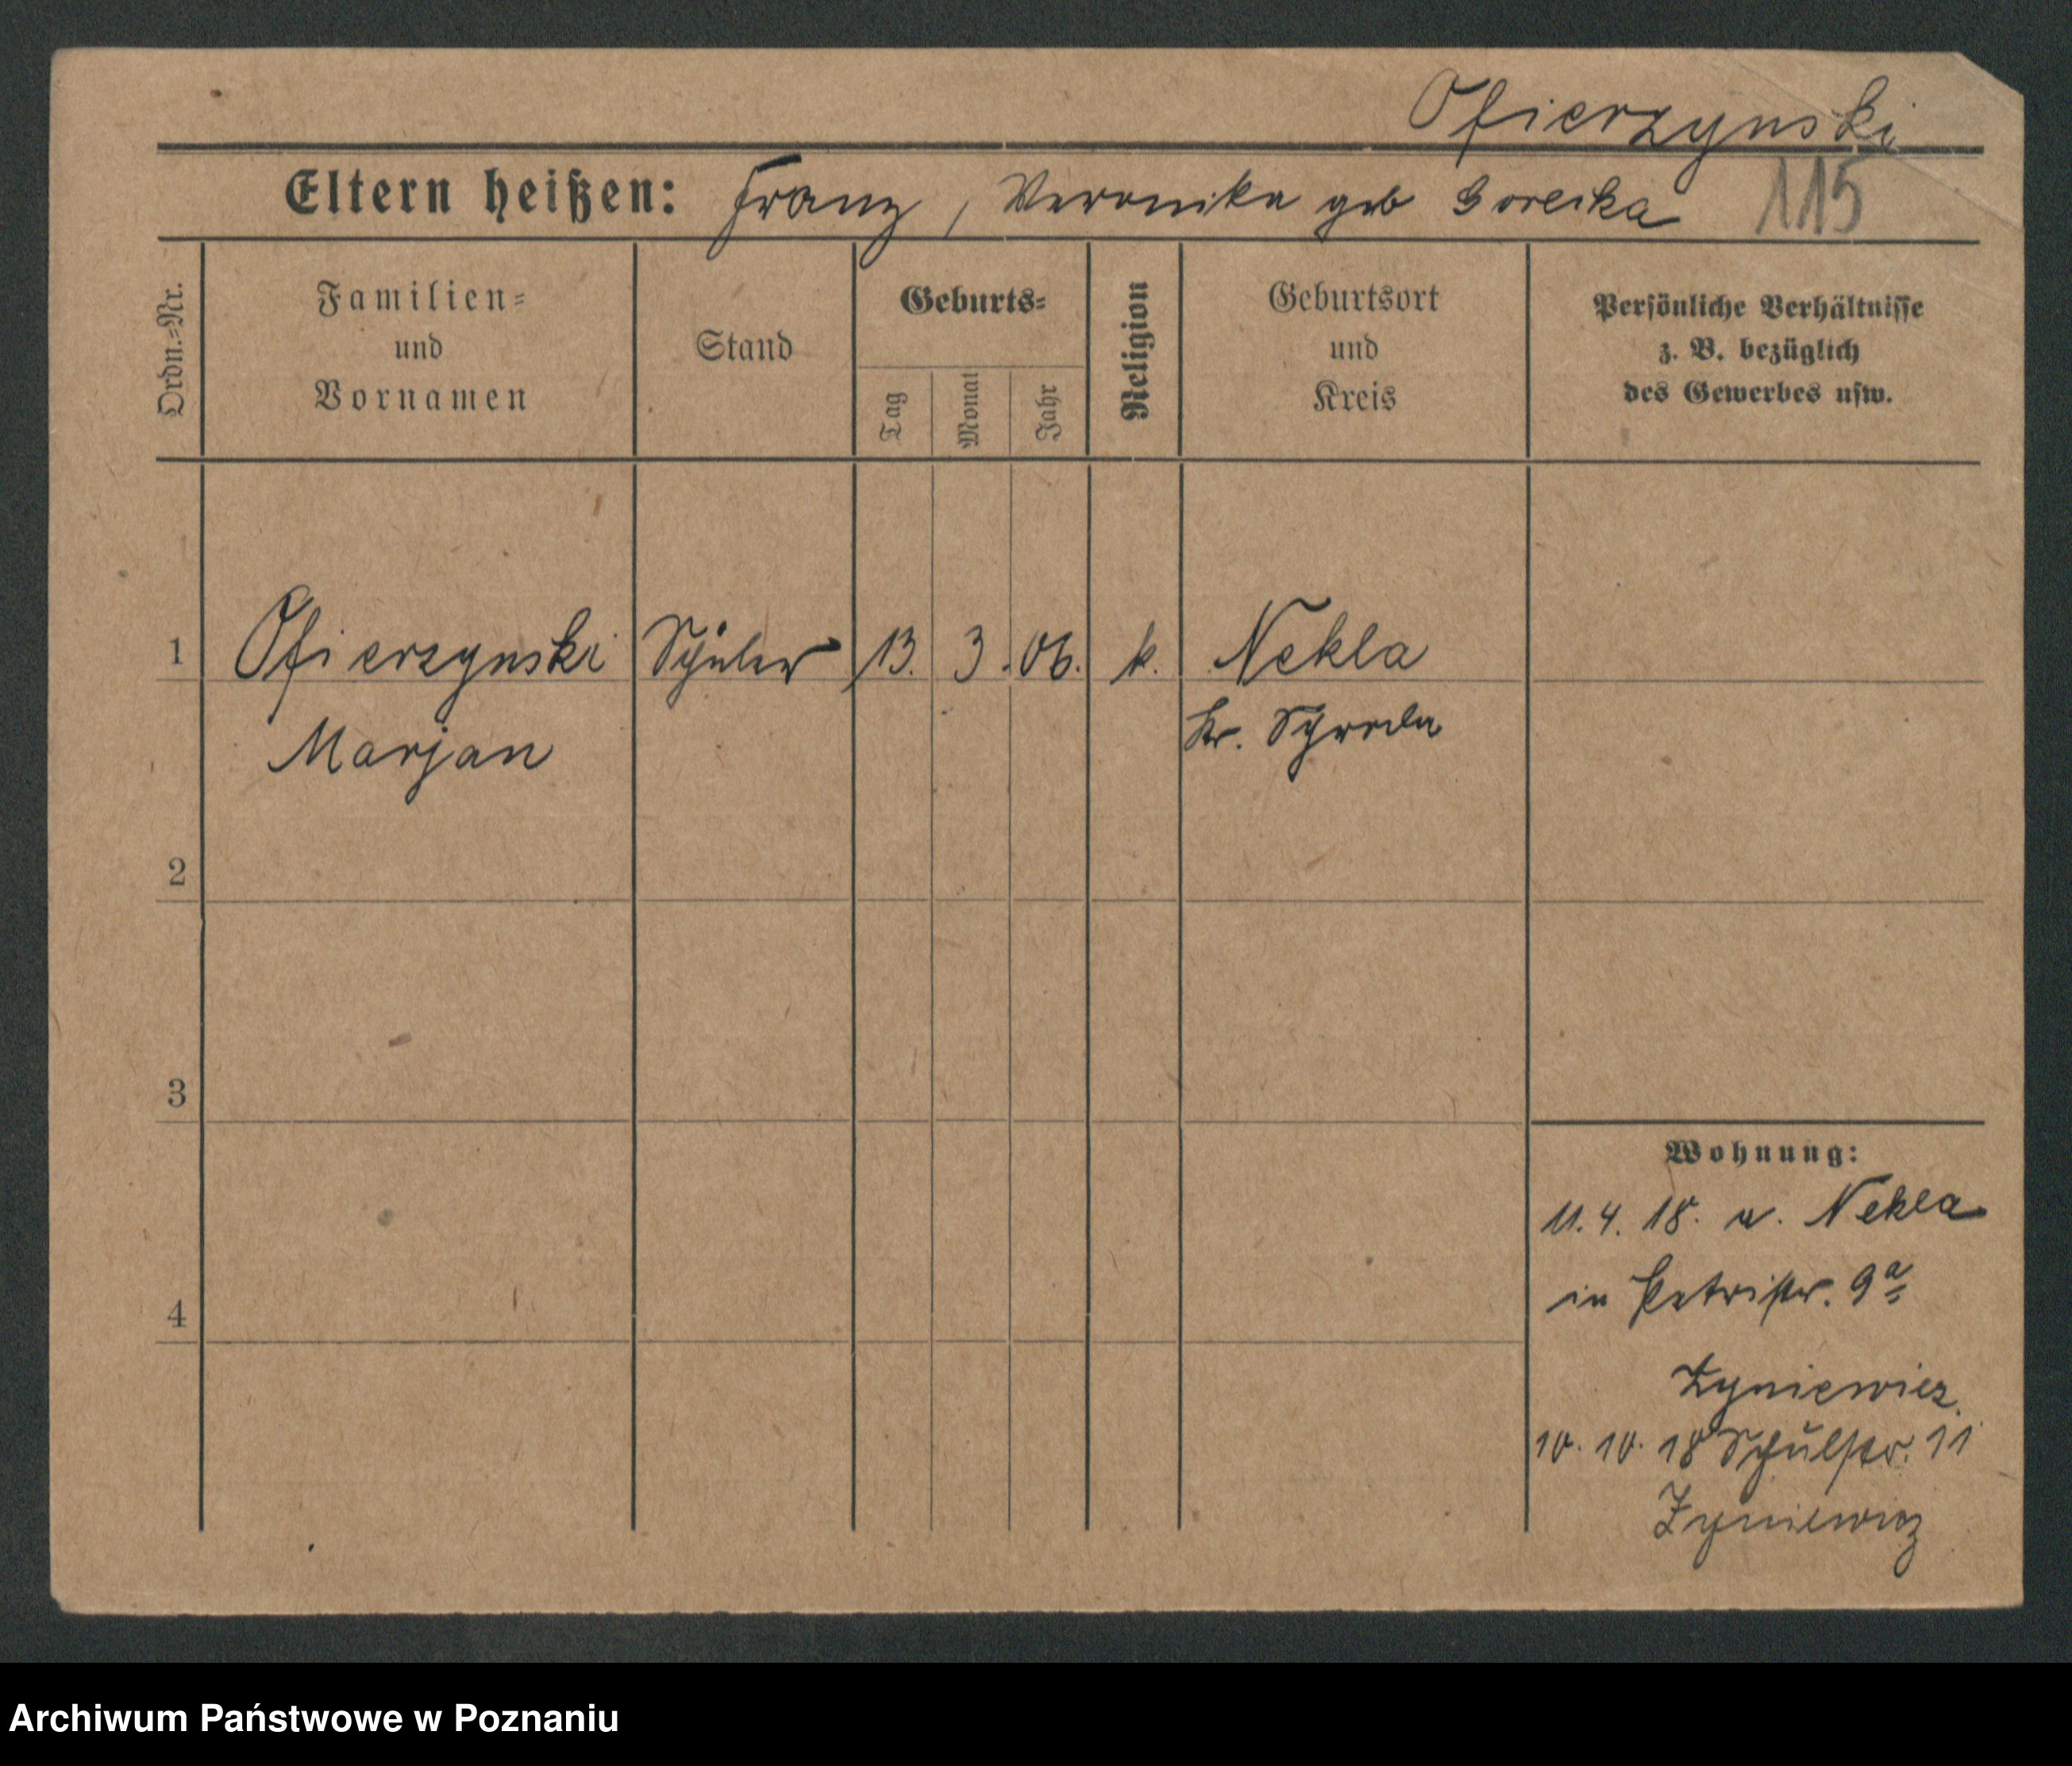 Ofierzynski
Eltern heißen: Franz, Veronika geb Gorecka 115
Ordn.=Nr.
Familien=
und
Vornamen
Stand
Geburts=
Tag
Monat
Jahr
Religion
Geburtsort
und
Kreis
Persönliche Verhältnisse
z. B. bezüglich
des Gewerbes usw.
1 Ofierzynski Schüler 13. 3. 06. k. Nekla
Marjan Kr. Schroda
2
3
4
Wohnung:
11. 4. 18. v. Nekla
in Petristr. 9a
Zyniewicz.
10. 10. 18 Schulstr. 11
Zyniewicz
Archiwum Państwowe w Poznaniu